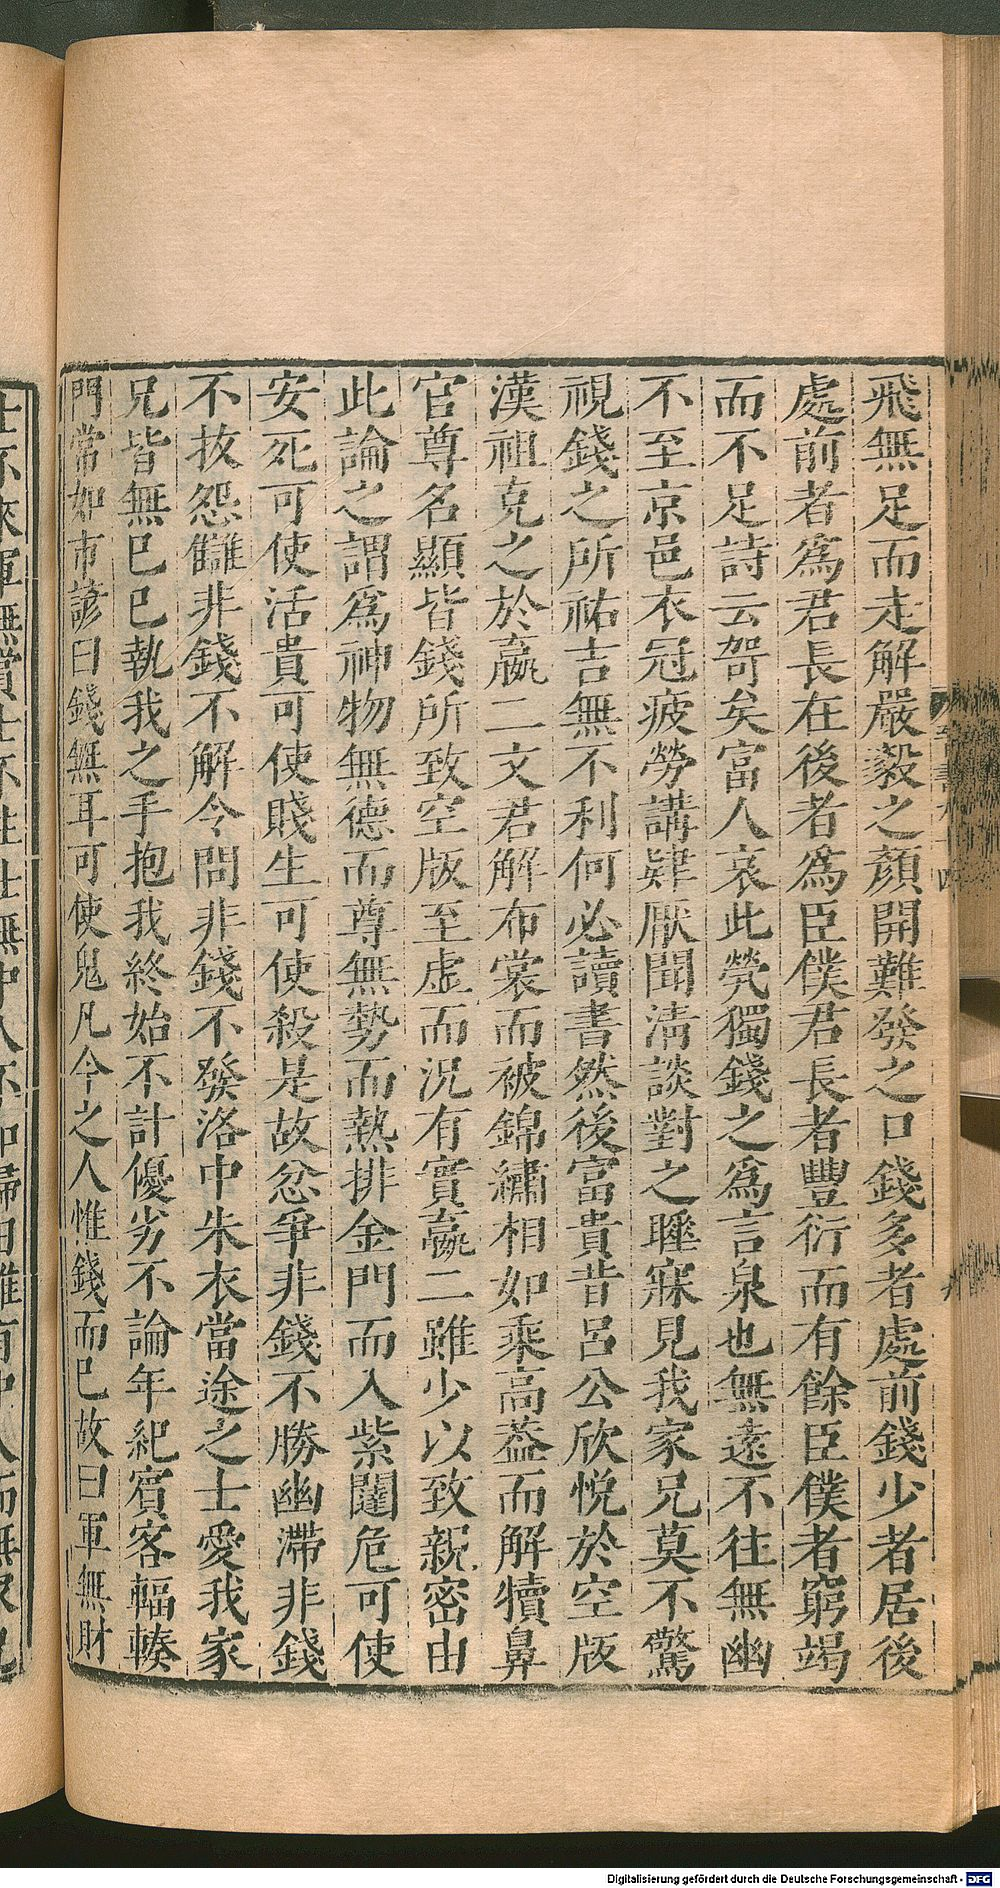 飛無足而走解嚴毅之顏開難發之口錢多者處前錢少者居後
處前者爲君長在後者爲臣僕君長者豐衍而有餘臣僕者窮竭
而不足詩云哿矣富人哀此煢獨錢之爲言泉也無遠不往無幽
不至京邑衣冠疲勞講肄厭聞淸談對之睡寐見我家兄莫不驚
視錢之所祐吉無不利何必讀書然後富貴昔呂公欣悅於空版
漢祖克之於嬴二文君解布裳而被錦繡相如乘高葢而解犢鼻
官尊名顯皆錢所致空版至虛而況有實嬴二雖少以致親密由
此論之謂爲神物無德而尊無勢而熱排金門而入紫闥危可使
安死可使活貴可使賤生可使殺是故忿爭非錢不勝幽滯非錢
不拔怨讎非錢不解令問非錢不發洛中朱衣當途之士愛我家
兄皆無已已執我之手抱我終始不計優劣不論年紀賓客輻輳
門常如市諺曰錢無耳可使鬼凡今之人惟錢而已故曰軍無財
士不來軍無賞士不往仕無中人不如歸田雖有中人而無家兄
Digitalisierung gefördert durch die Deutsche Forschungsgemeinschaft - DFG